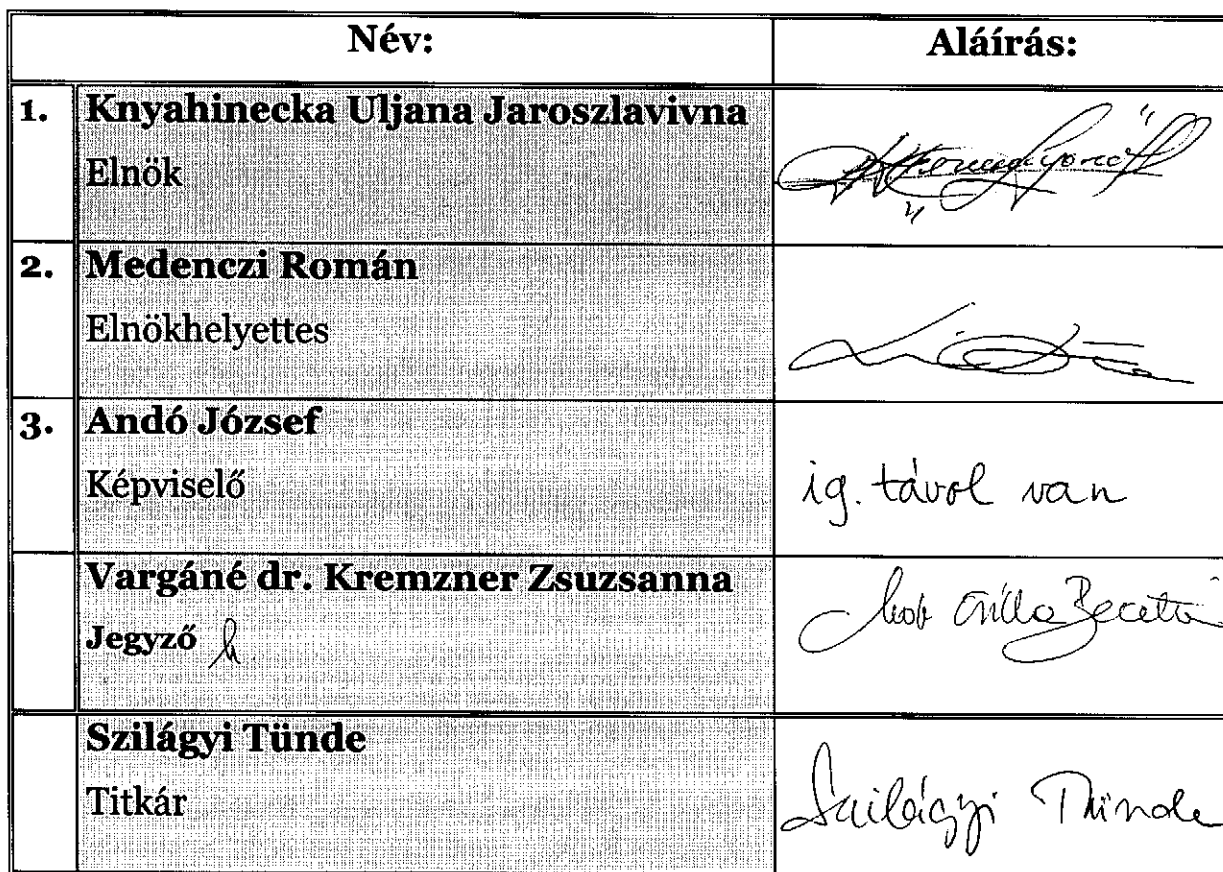 Név: Aláírás:
1. Knyahinecka Uljana Jaroszlavivna
Elnök
2. Medenczi Román
Elnökhelyettes
3. Andó József
Képviselő
ig. távol van
Vargáné dr. Kremzner Zsuzsanna
Jegyző h.
Szilágyi Tünde
Titkár
Szilágyi Tünde